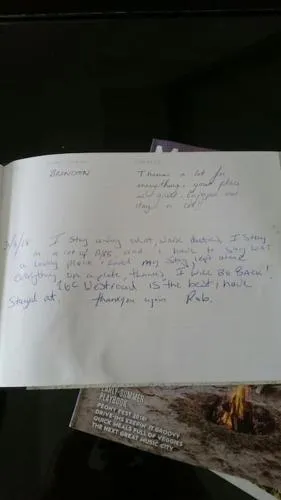 BRINDAN
Thanks a lot for
everything, your place
is great. Enjoyed our
stay a lot!
I stay away what, work I stay
in a lot of BNB and I have to say was
a lovely place loved my stay, kept alone
everything on a plate, thanks, I will BE BACK!
16c Westroad IS the best i have
Stayed at. thankyou again Rob.
FAMILY SUMMER
PLAYBOOK
PEONY FEST 2018!
DRIVE-INS KEEPIN' IT GROOVY
QUICK MEALS FULL OF VEGGIES
THE NEXT GREAT MUSIC CITY